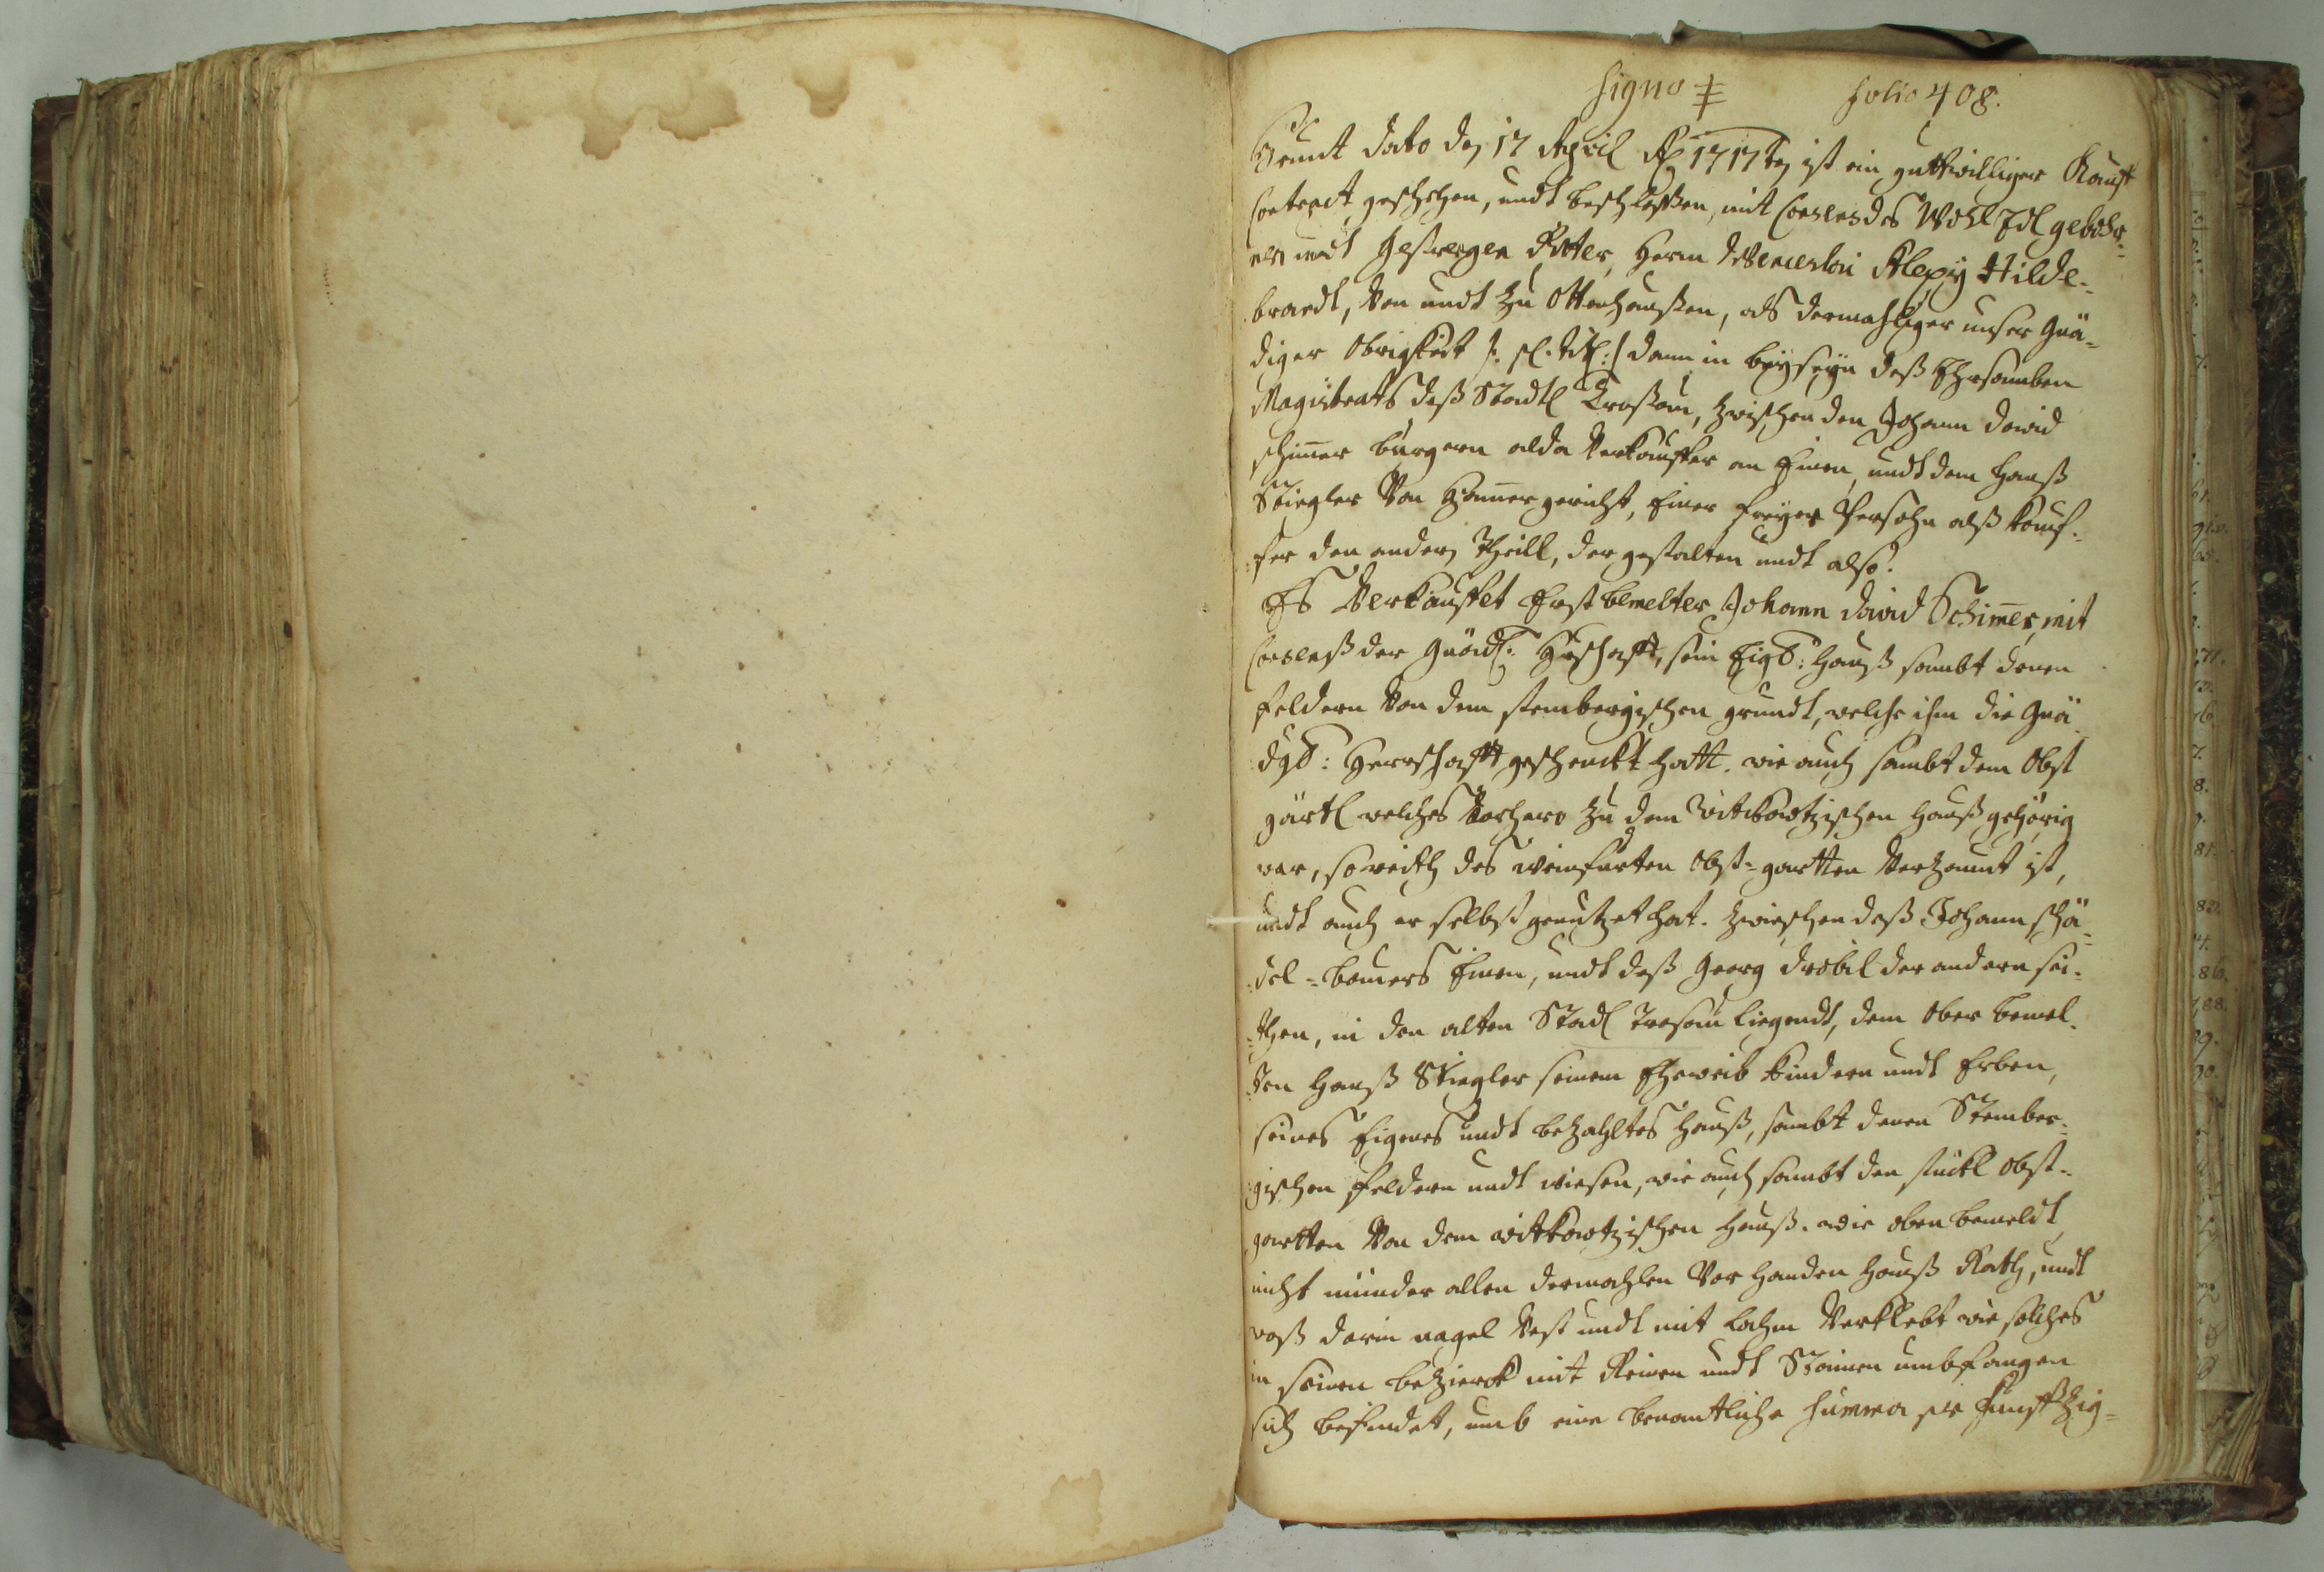 Signo ‡ folio 408.
Heundt dato deg 17 April Aō 1717teg ist ein guttwilliger Kauff
Contract geschehen, undt beschlossen, mit Consens des Woll Edl gebohr=
nen undt Gestrengen Ritter, Herrn Wenceslai Alexy Hilde=
brandt, Von undt zu Ottenhaußen, als dermahliger unser Gnä=
diger Obrigkeit /: pl. titl: / dann in beyseyn deß Ehrsamben
Magistrats deß Stadtl Drosau, zwischen den Johann David
Schimer burgern alda Verkauffer an Einen, undt dem Hanß
Stiegler Von Hamergericht, Einer freyer Persohn alß Kauf=
fer den andern Theill, dergestalten undt also.
Es Verkauffet Erstbemelter Johann David Schimer, mit
Consenß der Gnädl: Hrschafft, sein Eigd: Hauß sambt denen
feldern Von dem Stembergischen grundt, welche ihm die Gnä=
dge: Herrschafft geschenckt hatt. wie auch sambt dem Obst
gärtl welches Vorhero zu dem Witkowtzischen Hauß gehörig
war, so weith des Obst=gartten Verzaunt ist,
undt auch er selbst genutzet hat. zwieschen deß Johann Schä=
del=bauers Einen, undt deß Georg Drobil der andern sei=
then, in den alten Stadl Trosau liegendt, dem Ober bemel=
ten Hanß Stiegler seinem Eheweib Kindern undt Erben,
seines Eigenes undt bezahltes Hauß, sambt denen Stember=
gischen feldern undt wiesen, wie auch sambt den stückl Obst=
gartten Von dem Witkowtzischen Hauß. wie oben bemeldt,
nicht münder allen dermahlen Vor handen Hauß Rath, undt
waß darin nagel Vest undt mit Lahm Verklebt wie solches
in seinen bezierck mit Reinen undt Stainen umbfangen
sich befindet, umb eine benantliche Summa pr Funfftzig=